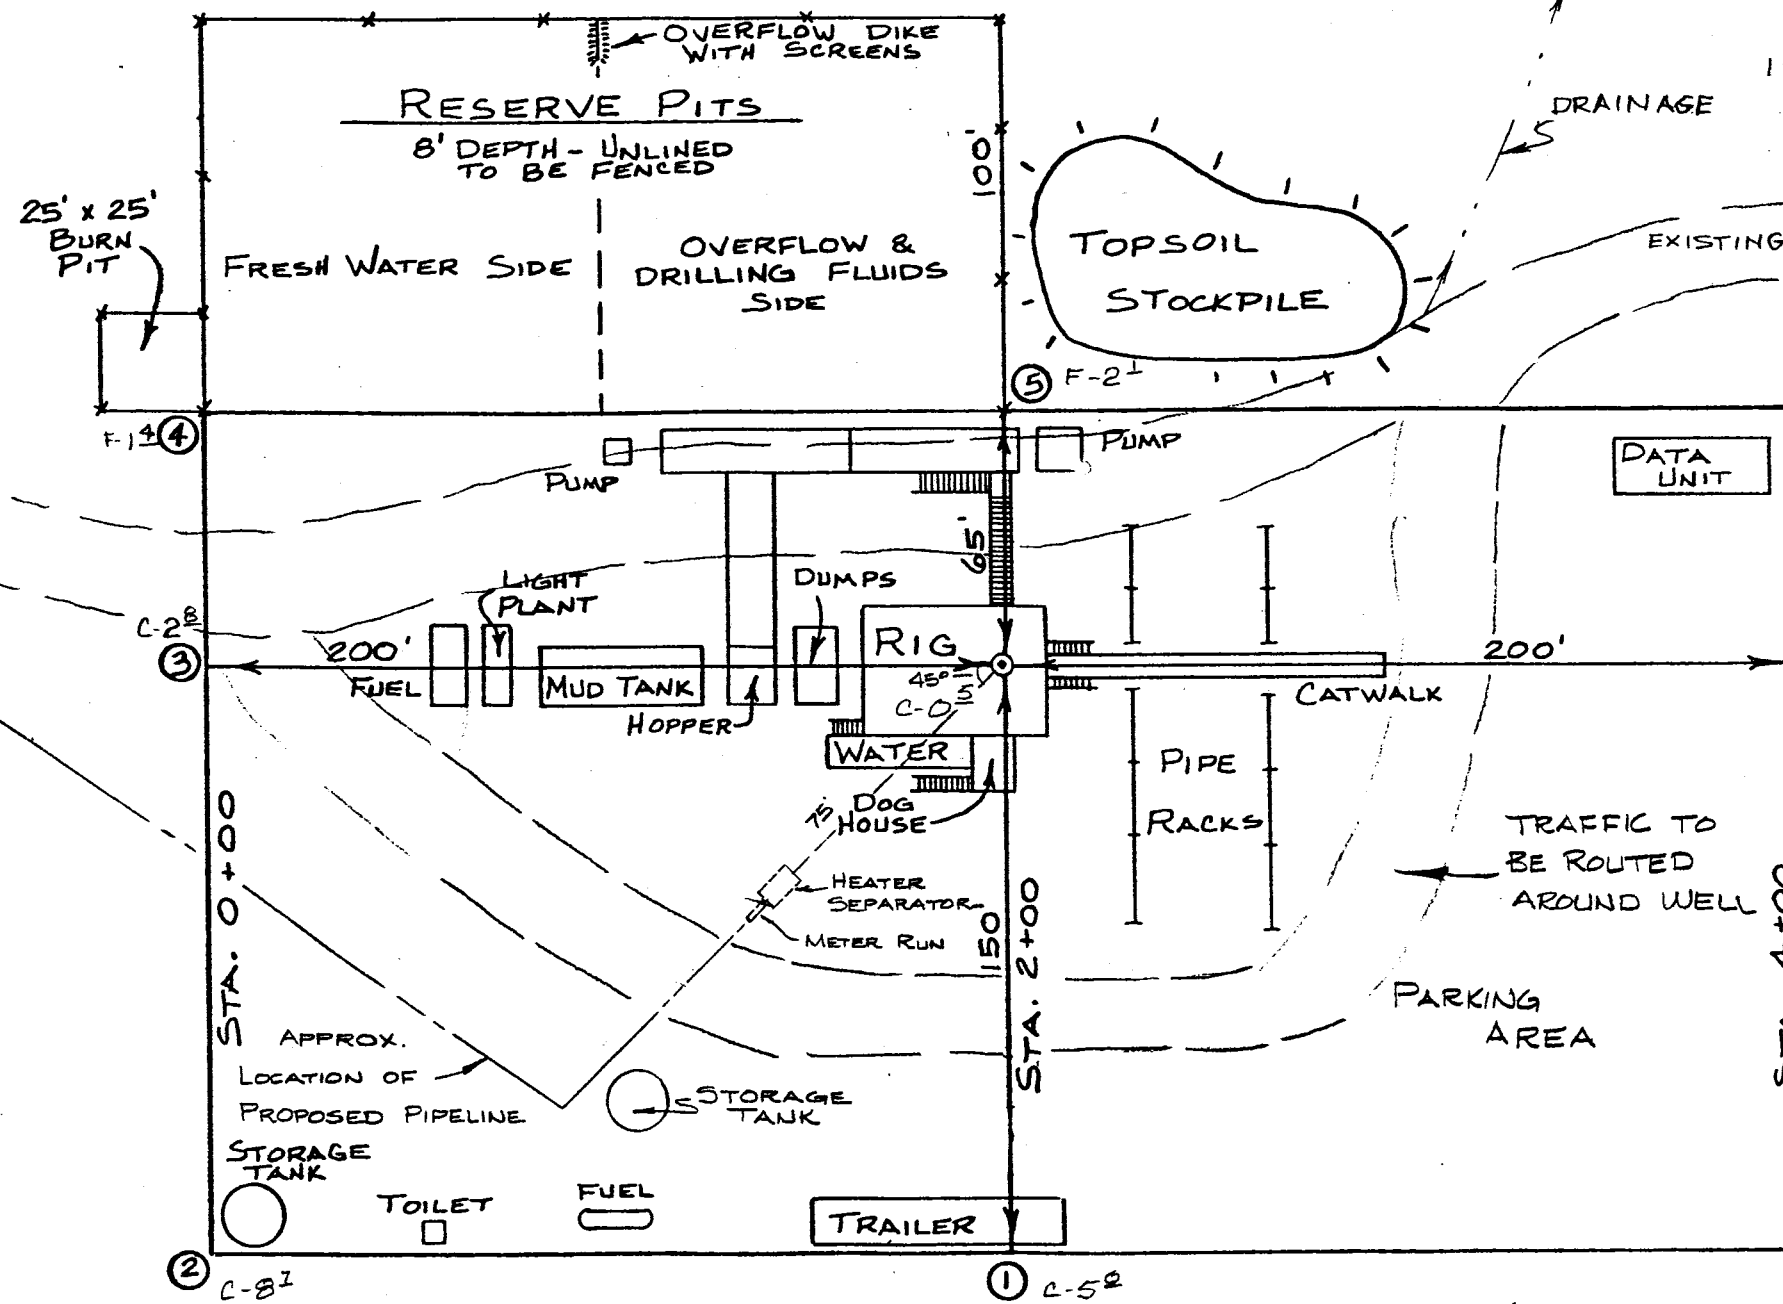 OVERFLOW DIKE
WITH SCREENS
RESERVE PITS
8' DEPTH - UNLINED
TO BE FENCED
100'
DRAINAGE
25' x 25'
BURN
PIT
FRESH WATER SIDE
OVERFLOW &
DRILLING FLUIDS
SIDE
TOPSOIL
STOCKPILE
EXISTING
5 F-2
F-1 4 4
PUMP
PUMP
DATA
UNIT
65'
LIGHT
PLANT
DUMPS
C-2 8
3
200'
FUEL
MUD TANK
HOPPER
RIG
45°
C-0 5
200'
CATWALK
WATER
DOG
HOUSE
75'
PIPE
RACKS
TRAFFIC TO
BE ROUTED
AROUND WELL
HEATER
SEPARATOR
METER RUN
150
STA. 0+00
STA. 2+00
STA. 4+00
PARKING
AREA
APPROX.
LOCATION OF
PROPOSED PIPELINE
STORAGE
TANK
STORAGE
TANK
TOILET
FUEL
TRAILER
2 C-8
1 C-5